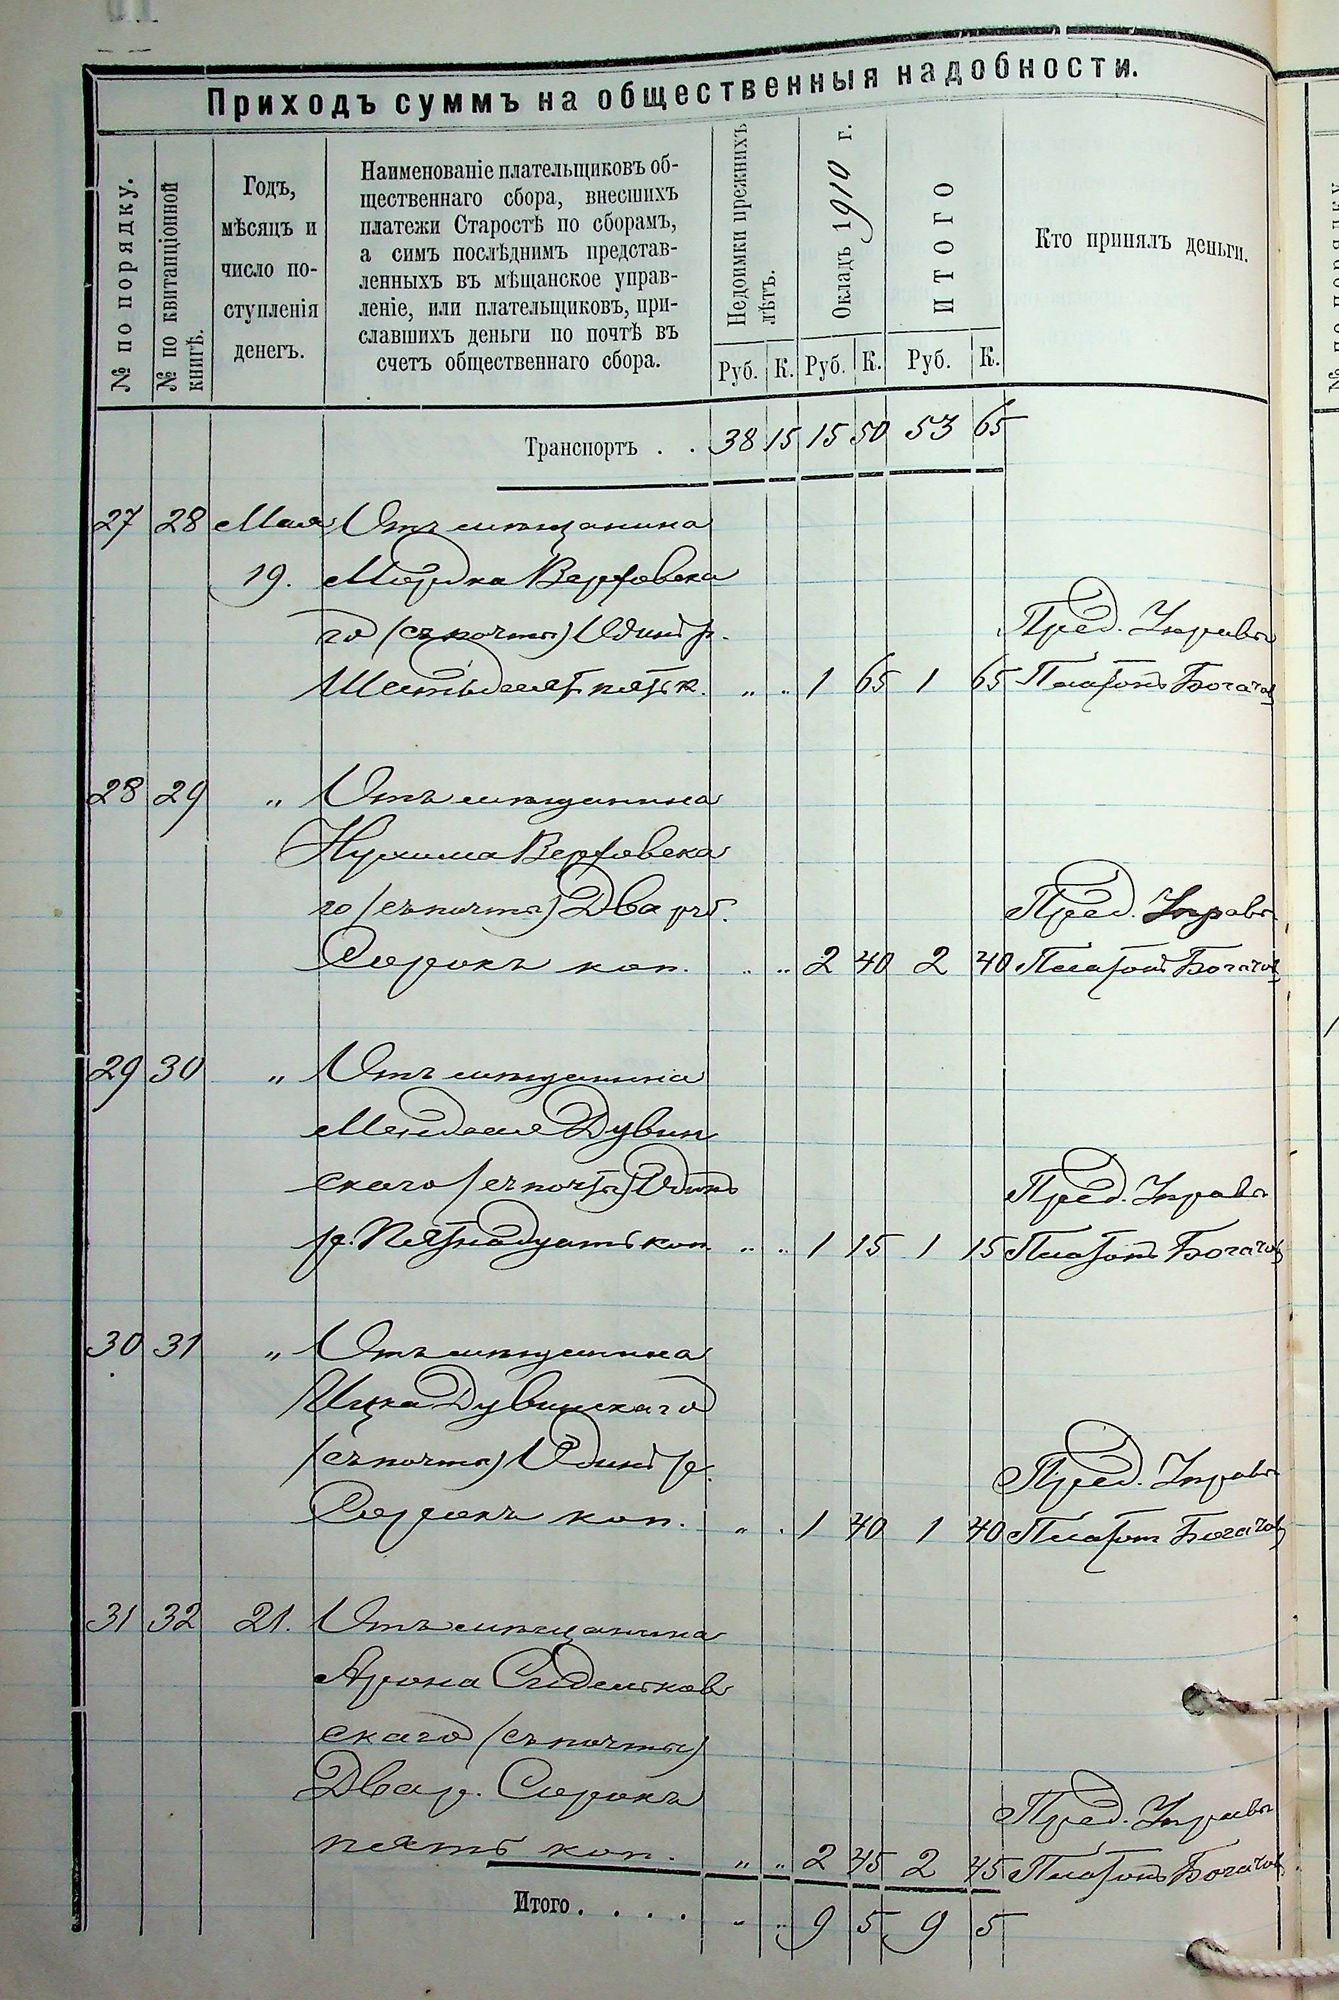 Приходъ суммъ на общественныя надобности.
№ по порядку.
№ по квитанціонной
книгѣ.
Годъ,
мѣсяцъ и
число по-
ступленія
денегъ.
Наименованіе плательщиковъ об-
щественнаго сбора, внесшихъ
платежи Старостѣ по сборамъ,
а симъ послѣднимъ представ-
ленныхъ въ мѣщанское управ-
леніе, или плательщиковъ, при-
славшихъ деньги по почтѣ въ
счетъ общественнаго сбора.
Недоимки прежнихъ
лѣтъ.
Окладъ 1910 г.
ИТОГО
Кто принялъ деньги.
Руб. К. Руб. К. Руб. К.
Транспортъ . . 38 15 15 50 53 65
27 28 Мая Отъ мѣщанина
19. Мордка Верховска
го (съ почты) Одинъ р. Пред. Управы
Шестьдесят пять к. „ „ 1 65 1 65 Платонъ Богачов
28 29 „ Отъ мѣщанина
Нухима Верховска
го (съ почты) Два руб. Пред. Управы
Сорокъ коп. „ „ 2 40 2 40 Платонъ Богачов
29 30 „ Отъ мѣщанина
Менделя Дувин
скаго (съ почты) Одинъ Пред. Управы
р. Пятнадцать коп. „ „ 1 15 1 15 Платонъ Богачов
30 31 „ Отъ мѣщанина
Ицка Дувинскаго
(съ почты) Одинъ р. Пред. Управы
Сорокъ коп. „ „ 1 40 1 40 Платон Богачов
31 32 21. Отъ мѣщанина
Арона Сидельков
скаго (съ почты)
Два р. Сорокъ Пред. Управы
пять коп. „ „ 2 45 2 45 Платонъ Богачов
Итого . . . . „ „ 9 5 9 5